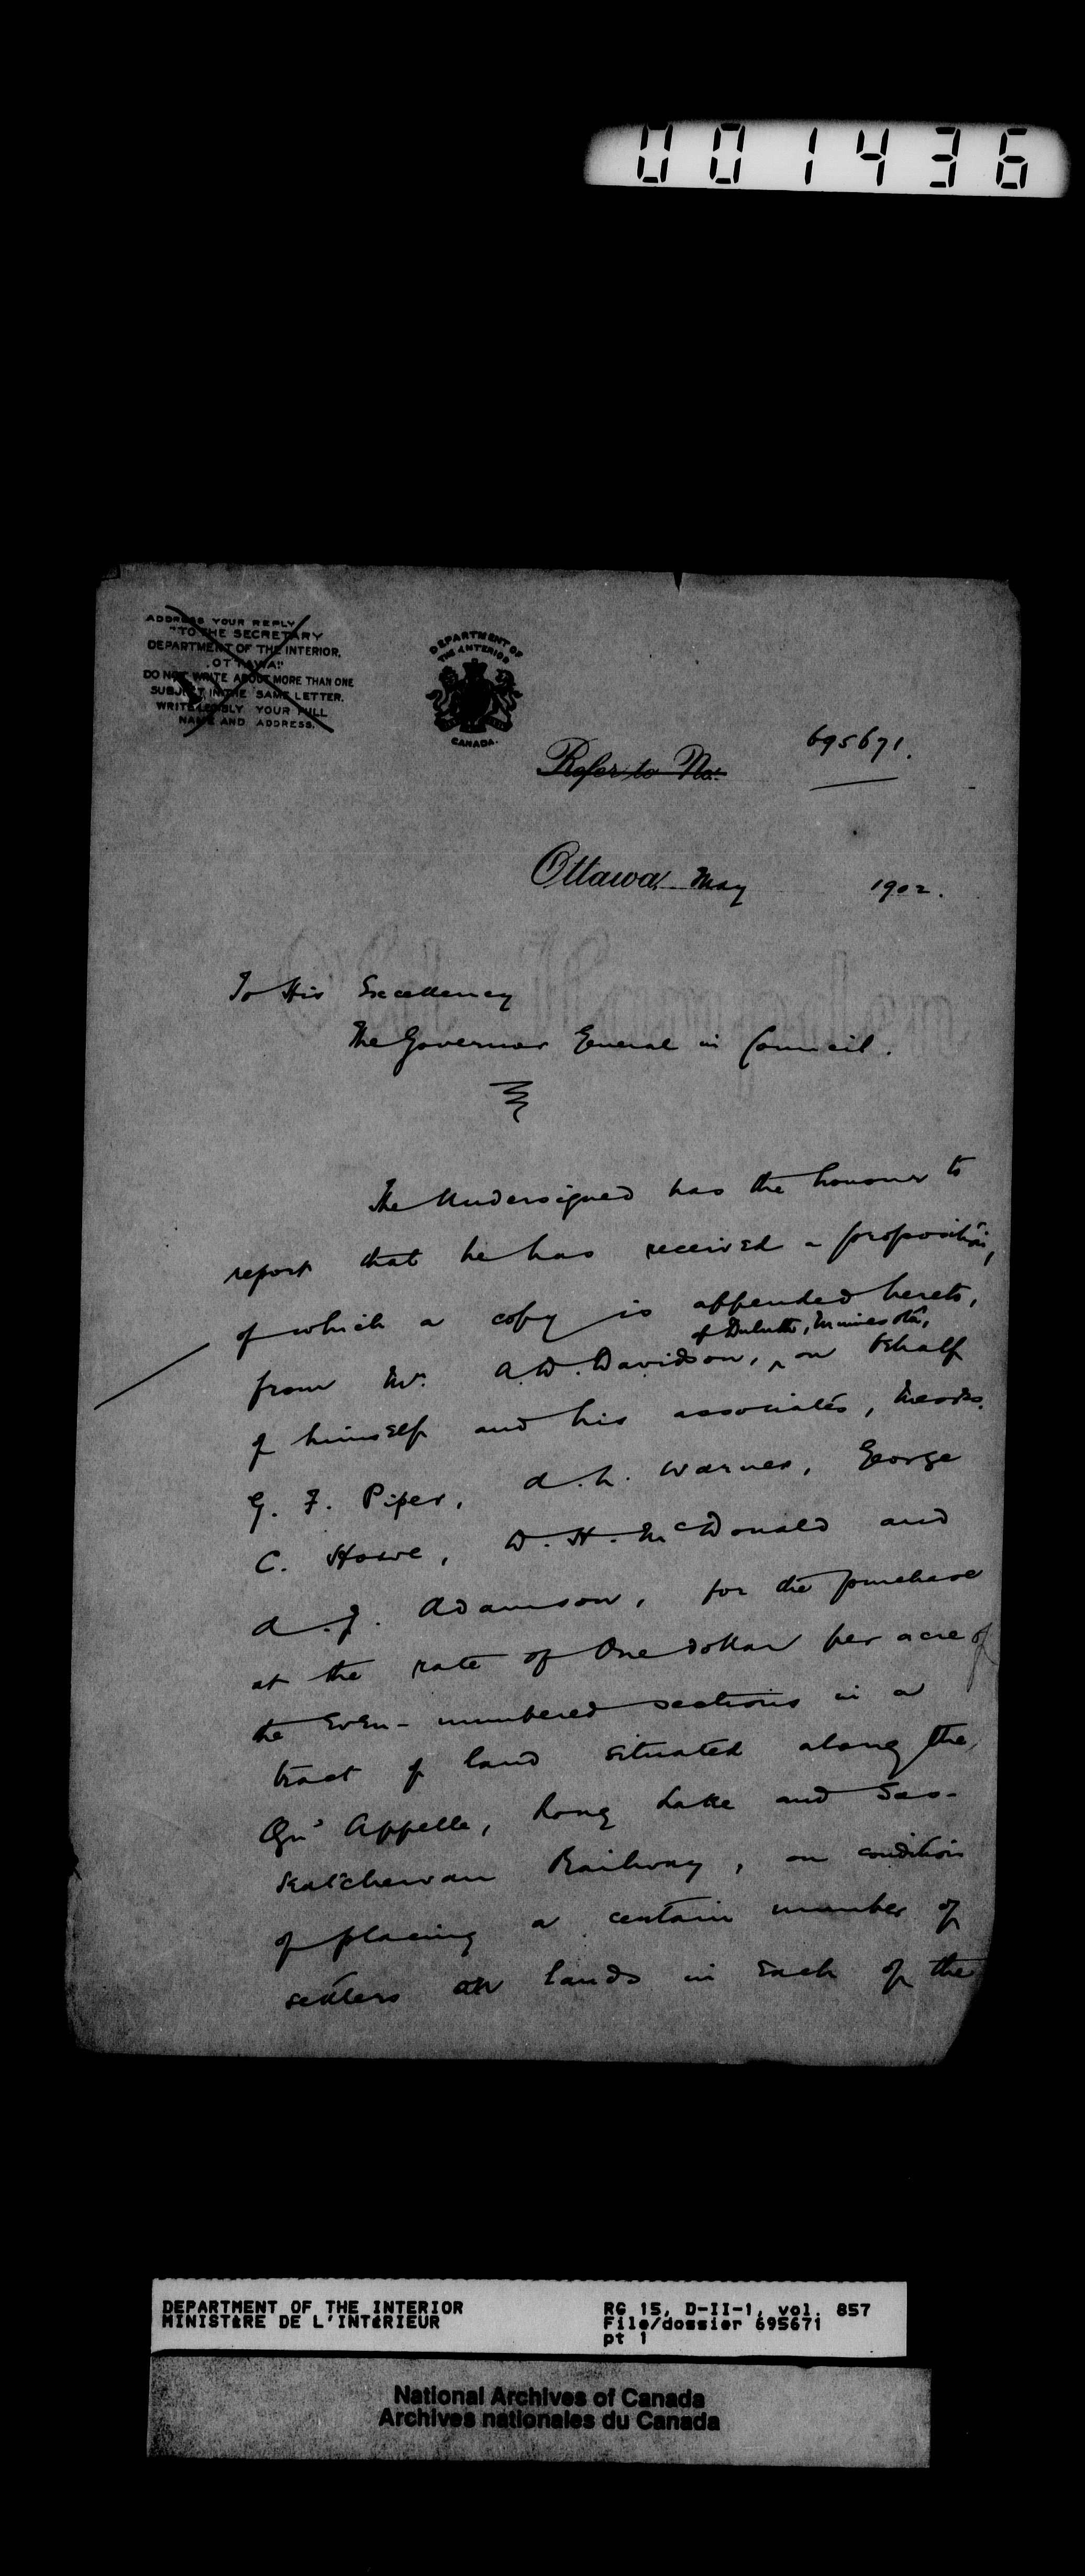 001436
ADDRESS YOUR REPLY
"TO THE SECRETARY
DEPARTMENT OF THE INTERIOR,
OTTAWA."
DO NOT WRITE ABOUT MORE THAN ONE
SUBJECT IN THE SAME LETTER.
WRITE LEGIBLY YOUR FULL
NAME AND ADDRESS.
DEPARTMENT OF
THE INTERIOR
CANADA.
Refer to No.
695671.
Ottawa, May 1902.
To His Excellency
The Governor General in Council.
The Undersigned has the honour to
report that he has received a proposition,
of which a copy is appended hereto,
of Duluth, Minnesota,
from Mr. A.D. Davidson, ^ on behalf
of himself and his associates, Messrs.
G. F. Piper, A. L. Warner, George
C. Howe, D. H. McDonald and
A. J. Adamson, for the purchase
at the rate of One dollar per acre of
the even-numbered sections in a
tract of land situated along the
Qu'Appelle, Long Lake and Sas-
katchewan Railway, on condition
of placing a certain number of
settlers on lands in each of the
DEPARTMENT OF THE INTERIOR
MINISTÈRE DE L'INTÉRIEUR
RG 15, D-II-1, vol. 857
File/dossier 695671
pt 1
National Archives of Canada
Archives nationales du Canada